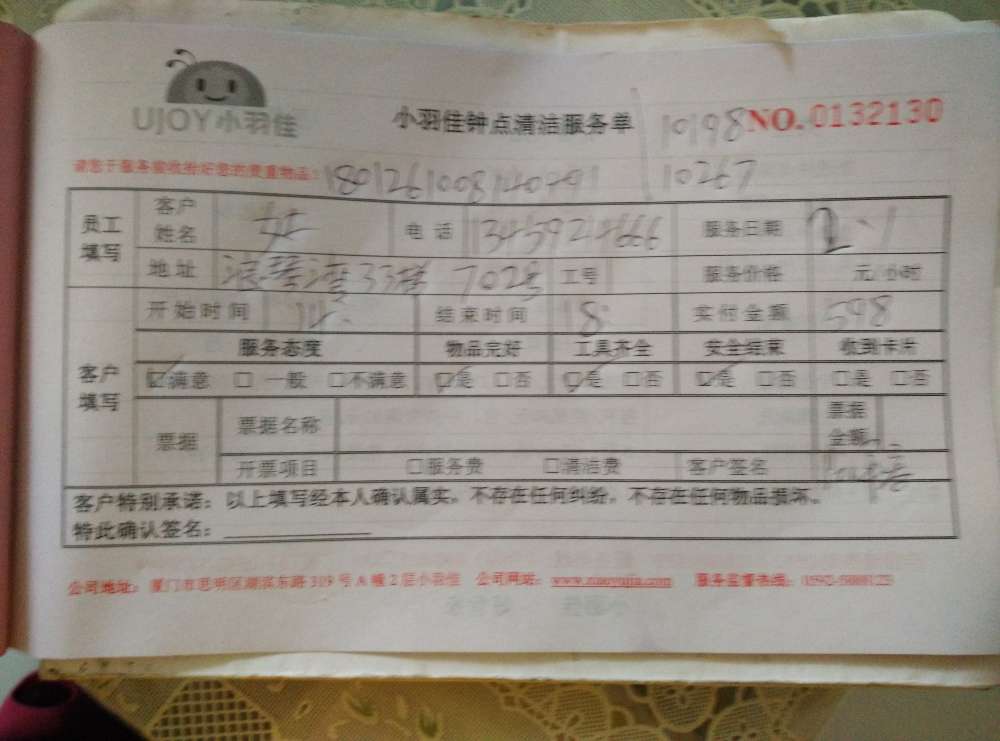 UJOY小羽佳
小羽佳钟点清洁服务单 10198 NO. 0132130
请您于服务前收拾好您的贵重物品: 10267
员工填写 客户姓名 电话 服务日期 2.1
地址 33 702号 工号 服务价格 元/小时
客户填写 开始时间 14: 结束时间 18: 实付金额 598
服务态度 物品完好 工具齐全 安全结束 收到卡片
☑满意 □一般 □不满意 ☑是 □否 ☑是 □否 ☑是 □否 □是 □否
票据 票据名称 票据金额
开票项目 □服务费 □清洁费 客户签名
客户特别承诺:以上填写经本人确认属实,不存在任何纠纷,不存在任何物品损坏。
特此确认签名:
公司地址:厦门市思明区湖滨东路319号A幢2层小羽佳 公司网站:www.xiaoyujia.com 服务监督热线: